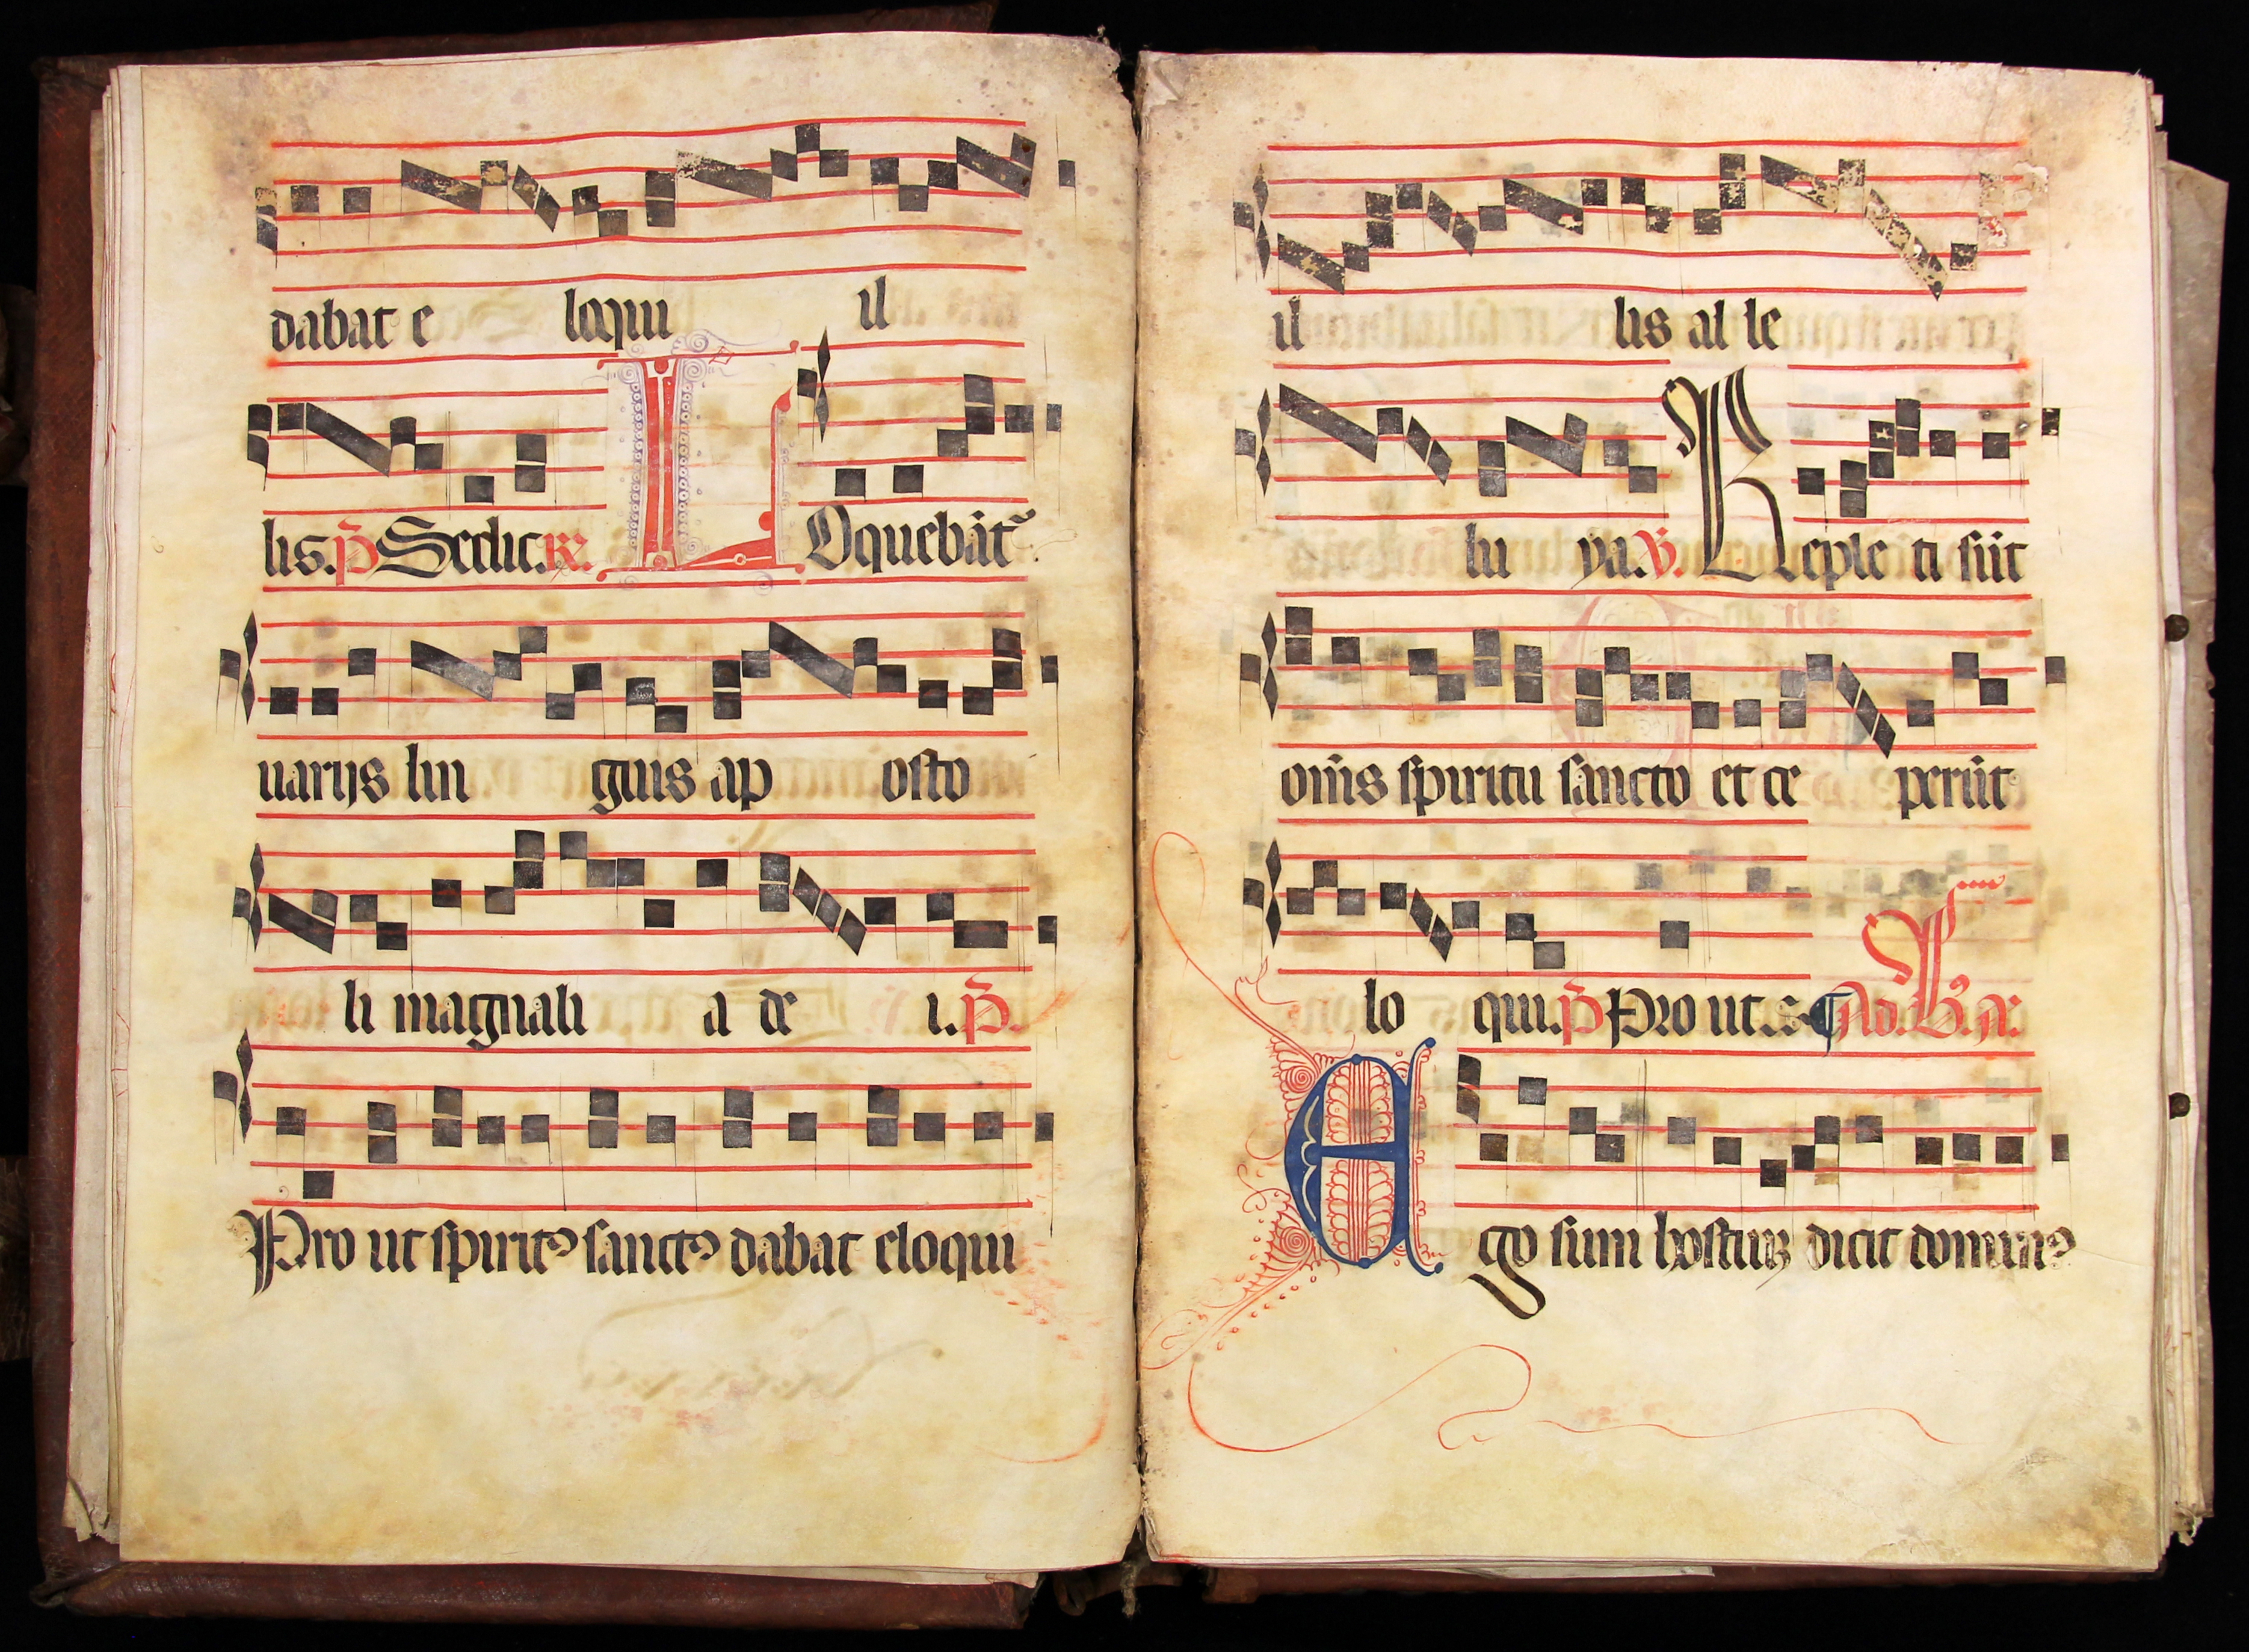 dabat e loqui il
lis. p̄ Sedit. R. LOquebāt᷑
uarijs lin guis ap osto
li magnali a de i. p̄.
Pro ut spiritꝰ sanctꝰ dabat eloqui
il lis al le
lu ya. V. Reple ti sūt
om̄s spiritu sancto et ce perūt
lo qui. p̄ Pro ut. s. ¶ Ad. B. a.
Ego sum hostiuȝ dicit dominꝰ